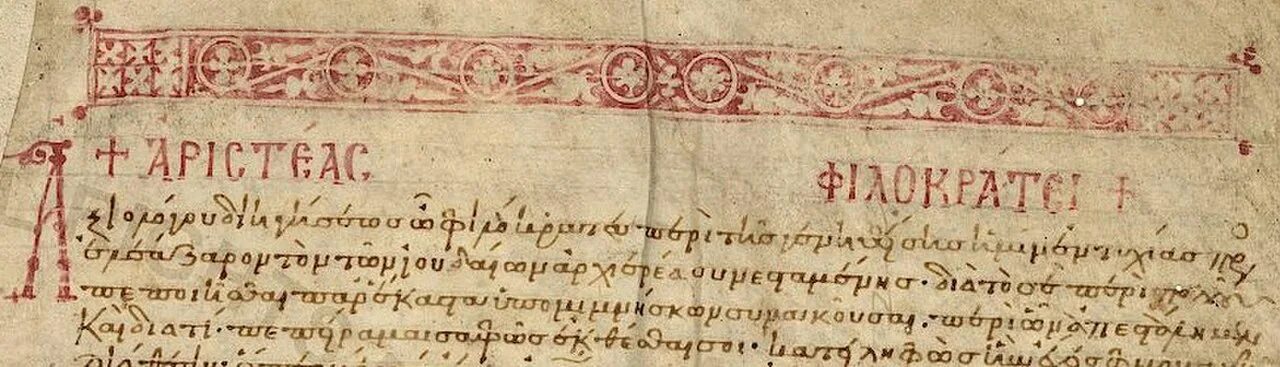 + ἈΡΙΣΤΈΑΣ ΦΙΛΟΚΡΆΤΕΙ +
Ἀξιολόγου διηγήσεως ὦ φιλόκρατες περὶ τῆς γενηθείσης ἡμῖν ἐντυχίας πρὸς
ἐλεάζαρον τὸν τῶν ἰουδαίων ἀρχιερέα συνεσταμένης · διὰ τὸ σὲ περὶ πολλοῦ
πεποιῆσθαι παρέκαστα ὑπομιμνήσκων συνακοῦσαι · περὶ ὧν ἀπεστάλημεν
καὶ διατί · πεπείραμαι σαφῶς ἐκθέσθαι σοι · κατειληφὼς ἣν ἔχεις φιλομαθῆ